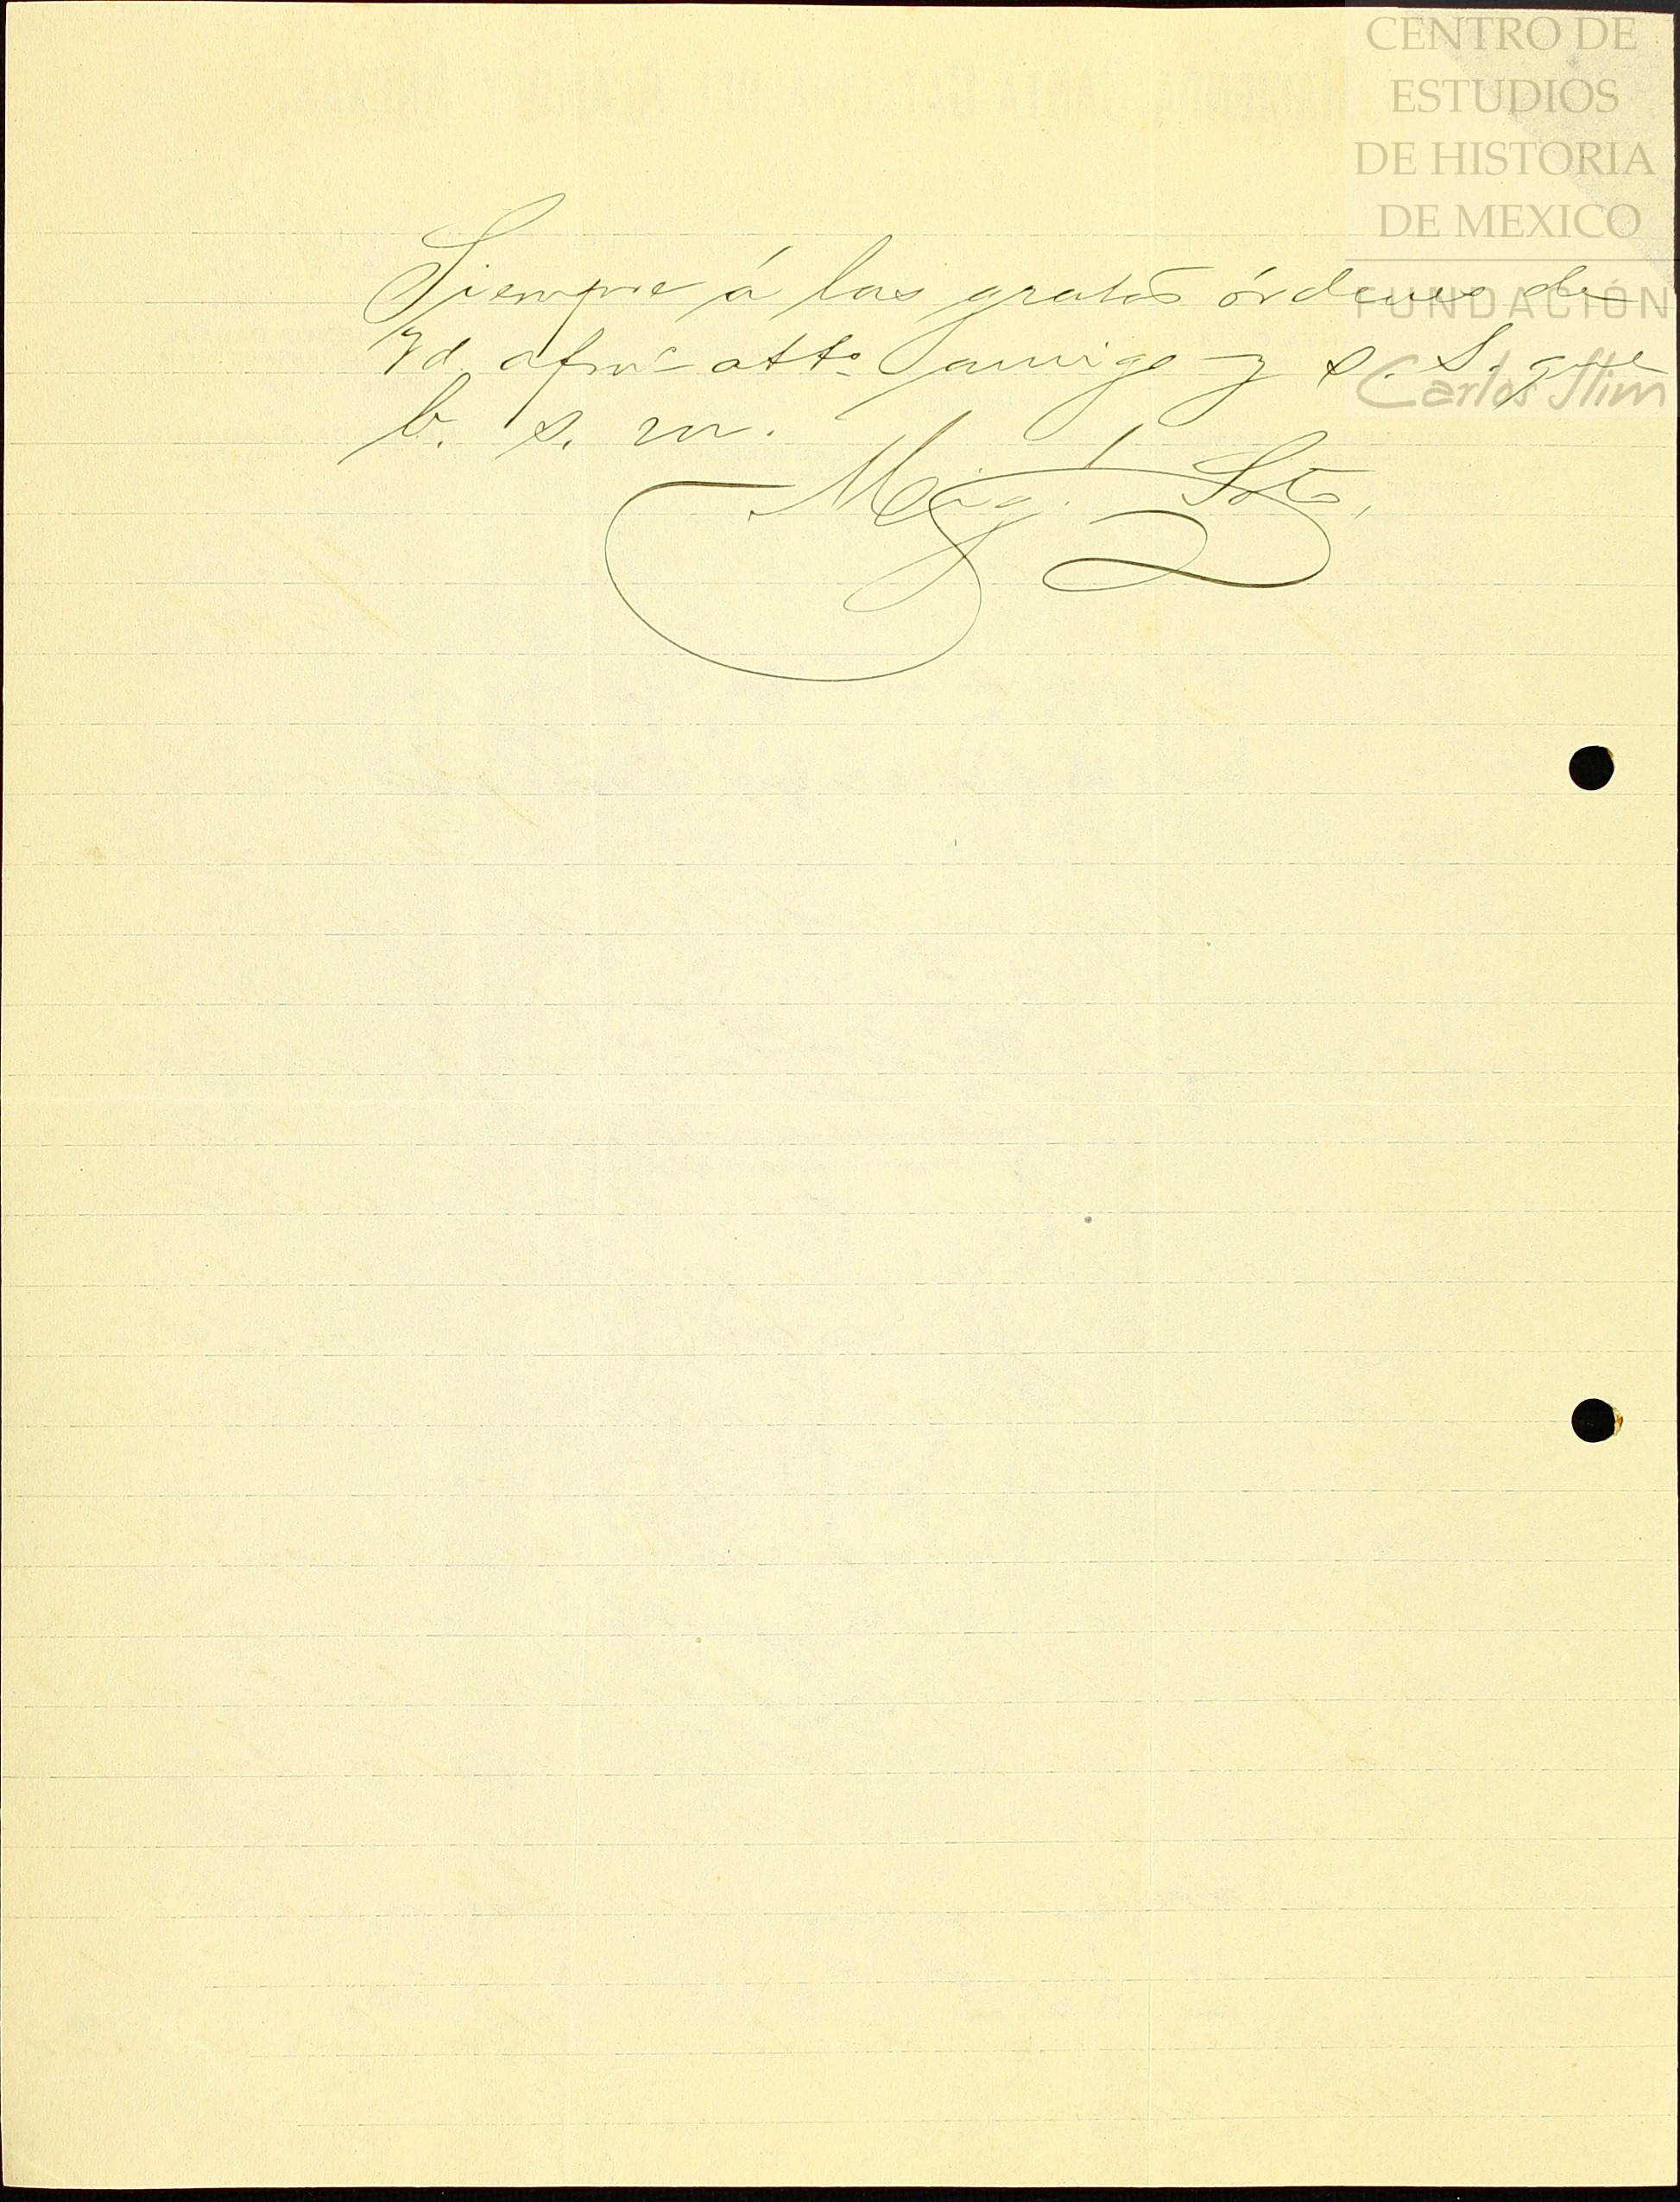 CENTRO DE
ESTUDIOS
DE HISTORIA
DE MEXICO
FUNDACIÓN
Carlos Slim
Siempre á las gratas órdenes de
Vd. afmo. atto. amigo y s. S. que
b. s. m.
Mig. Soto,